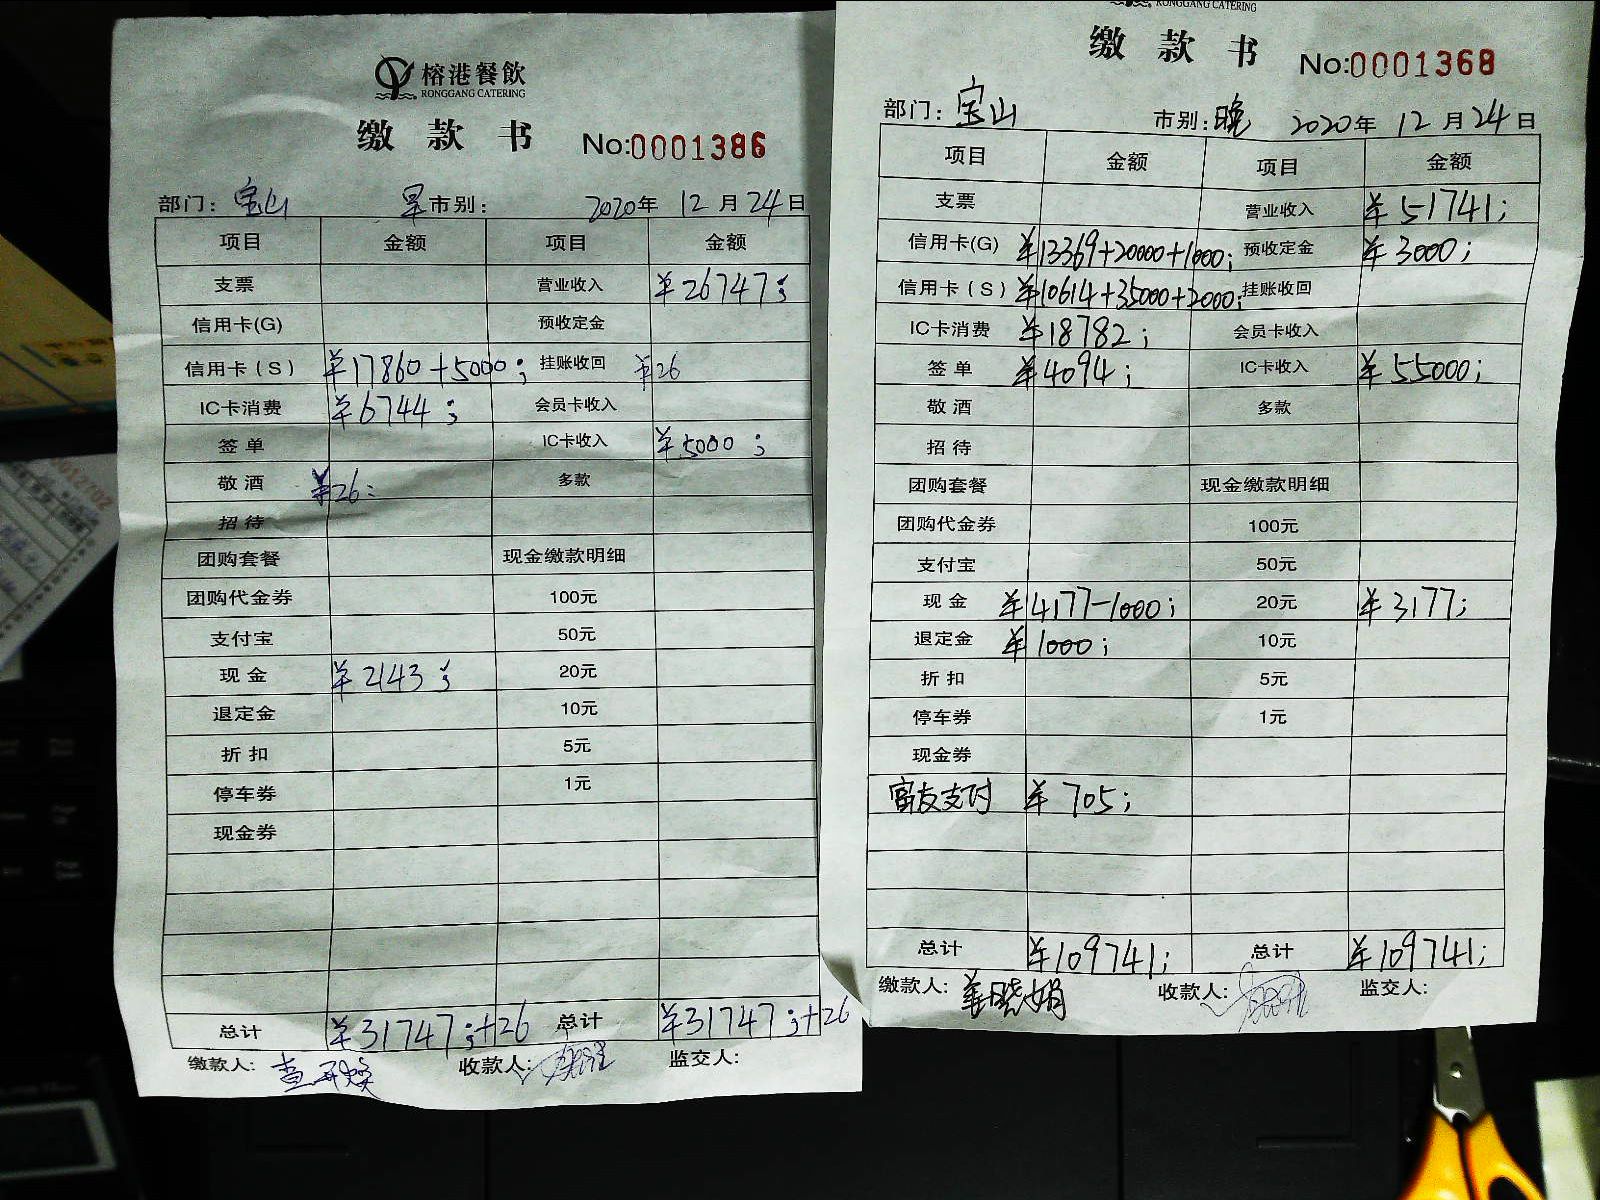 榕港餐飲
RONGGANG CATERING
缴款书 No:0001386
部门: 宝山 早市别: 2020年 12月24日
项目 金额 项目 金额
支票 营业收入 ¥26747;
信用卡(G) 预收定金
信用卡(S) ¥17860+5000; 挂账收回 ¥26
IC卡消费 ¥6744; 会员卡收入
签单 IC卡收入 ¥5000;
敬酒 ¥26; 多款
招待
团购套餐 现金缴款明细
团购代金券 100元
支付宝 50元
现金 ¥2143; 20元
退定金 10元
折扣 5元
停车券 1元
现金券
总计 ¥31747;+26 总计 ¥31747;+26
缴款人: 收款人: 监交人:
RONGGANG CATERING
缴款书 No:0001368
部门: 宝山 市别: 晚 2020年 12月24日
项目 金额 项目 金额
支票 营业收入 ¥51741;
信用卡(G) ¥13369+20000+1000; 预收定金 ¥3000;
信用卡(S) ¥10614+35000+2000; 挂账收回
IC卡消费 ¥18782; 会员卡收入
签单 ¥4094; IC卡收入 ¥55000;
敬酒 多款
招待
团购套餐 现金缴款明细
团购代金券 100元
支付宝 50元
现金 ¥4177-1000; 20元 ¥3177;
退定金 ¥1000; 10元
折扣 5元
停车券 1元
现金券
富友支付 ¥705;
总计 ¥109741; 总计 ¥109741;
缴款人: 姜晓娟 收款人: 监交人: